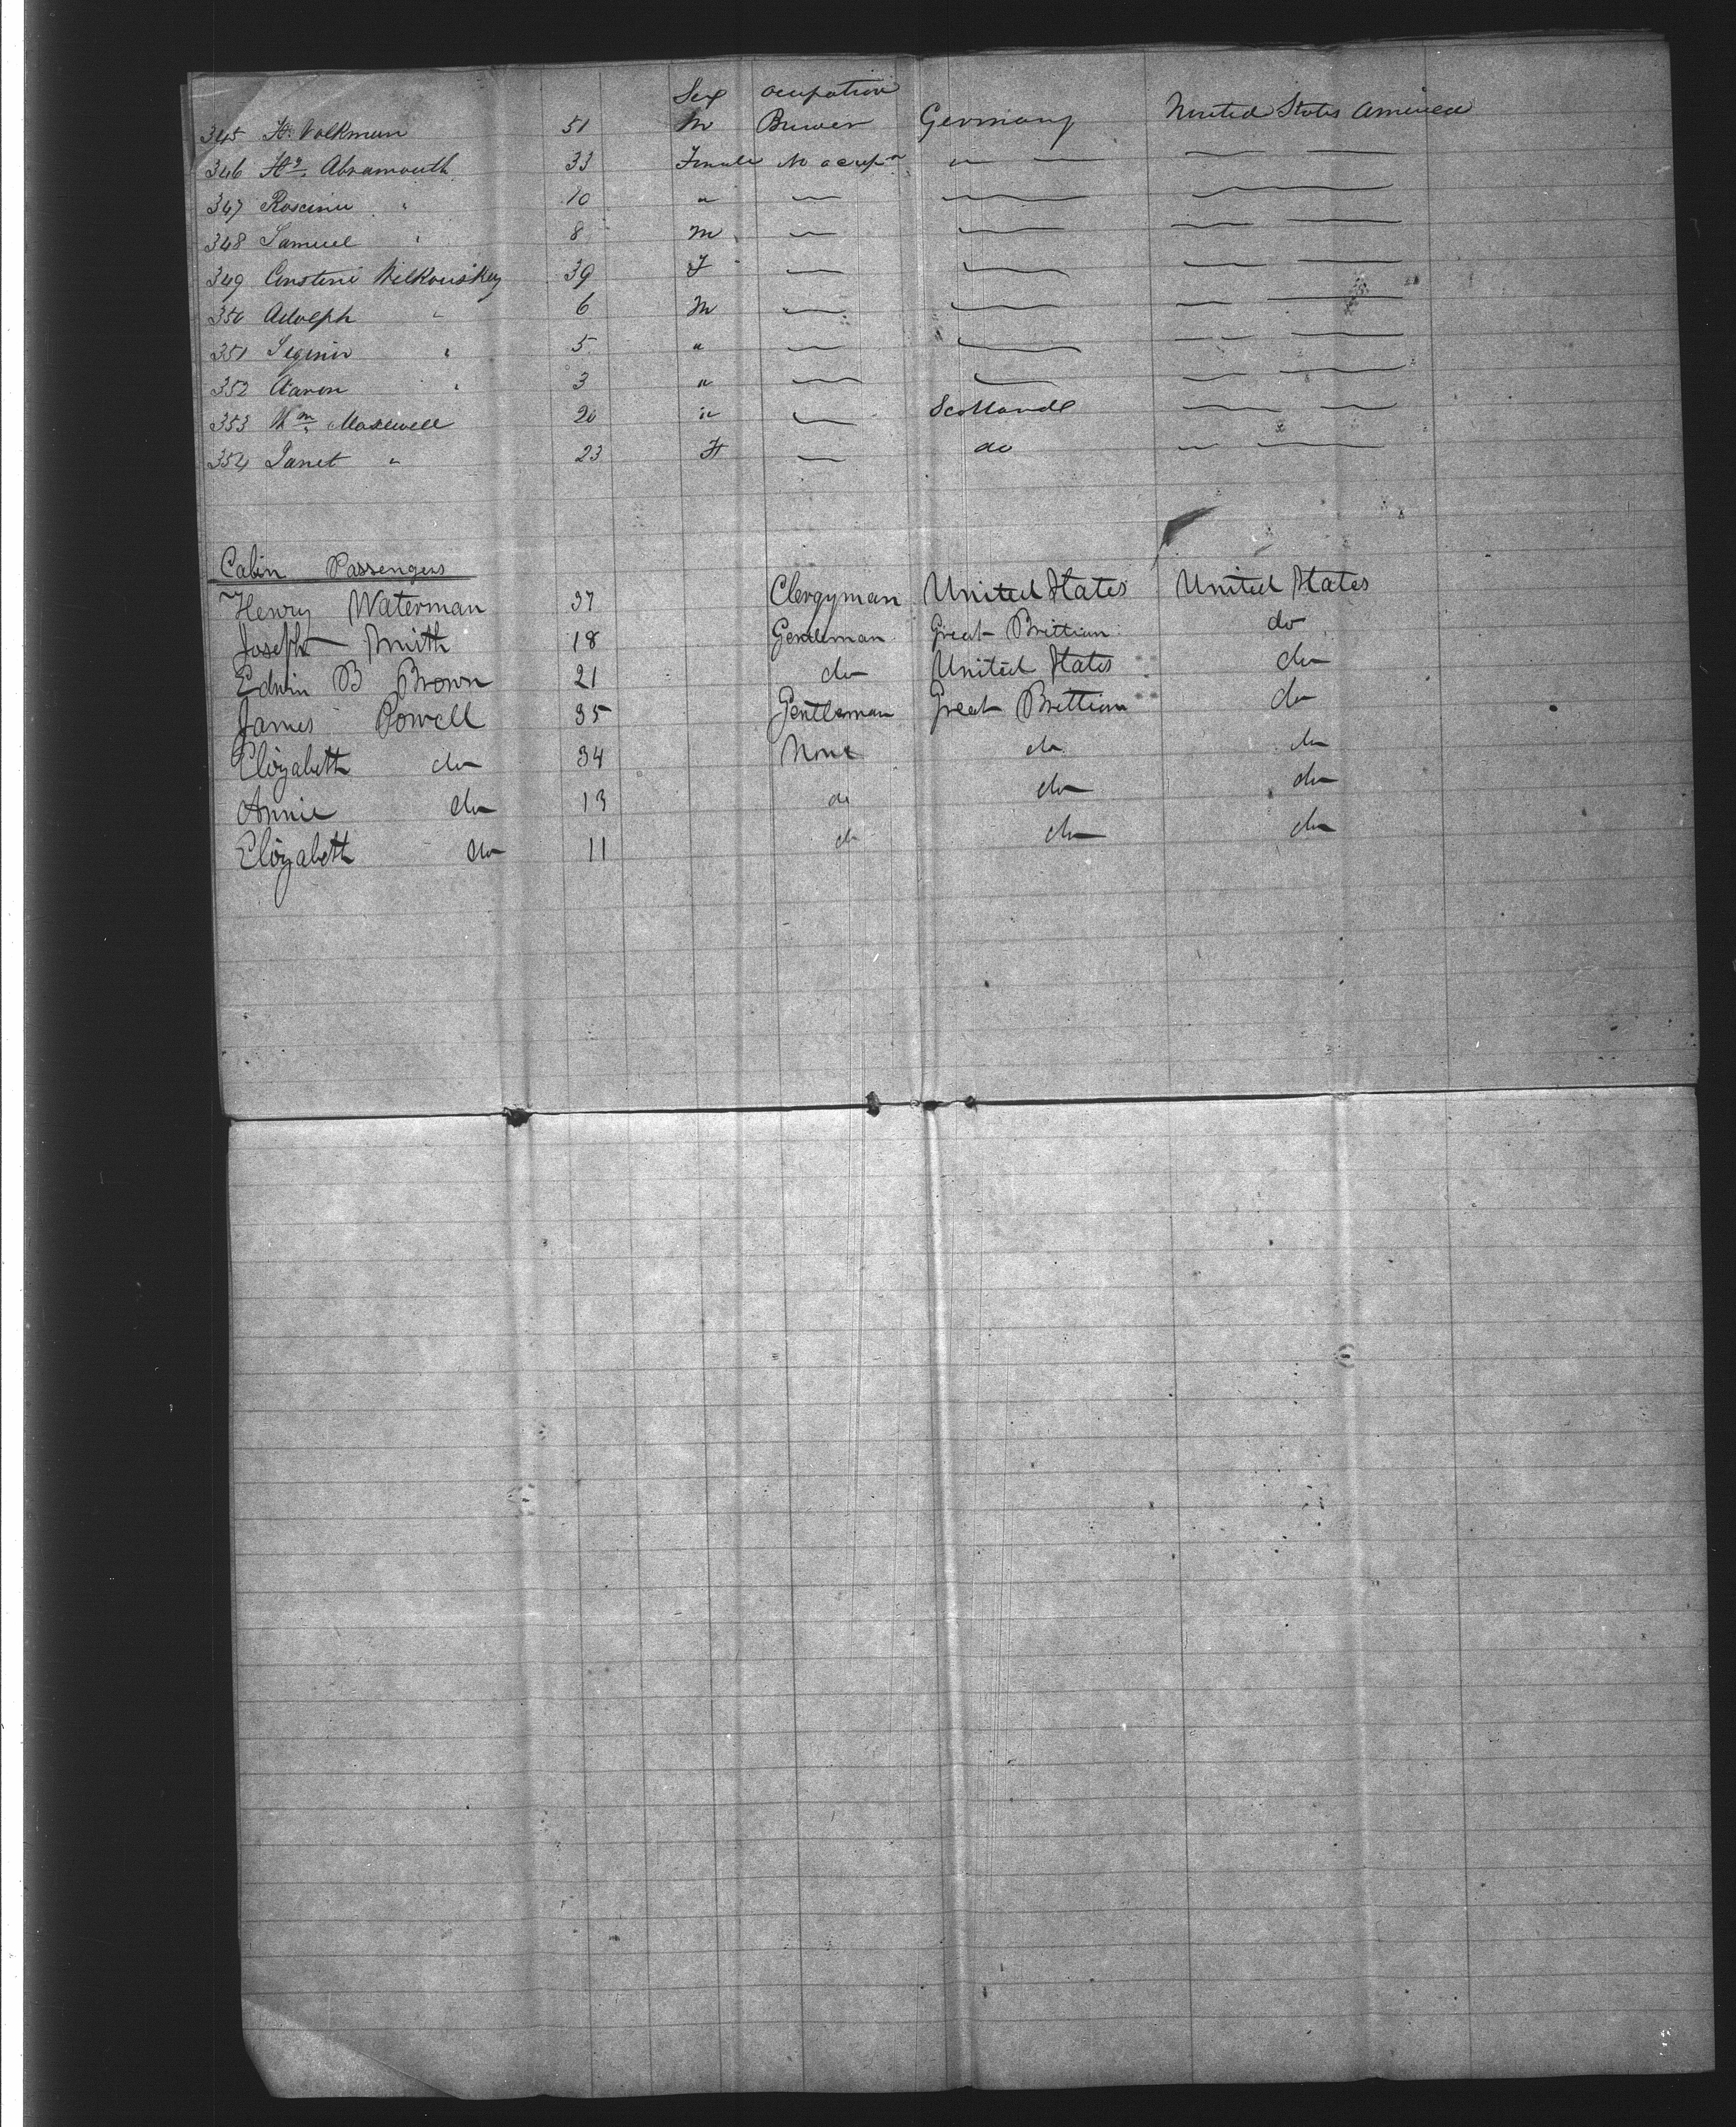 Sex ocupation
345 H. Volkman 51 M Brewer Germany United States America
346 Abramouth 33 Female No ocupn " — — —
347 " 10 " — — —
348 Samuel " 8 M — — — —
349 Wilkouskey 39 F — — — —
350 Adolph " 6 M — — — —
351 " 5 " — — — —
352 Aaron " 3 " — — — —
353 Wm Maxwell 20 " — Scotland — —
354 Janet " 23 F — do — —
Cabin Passengers
Henry Waterman 37 Clergyman United States United States
Joseph Smith 18 Gentleman Great Brittian do
Edwin B Brown 21 do United States do
James Powell 35 Gentleman Great Brittian do
Elizabeth do 34 None do do
Annie do 13 do do do
Elizabeth do 11 do do do